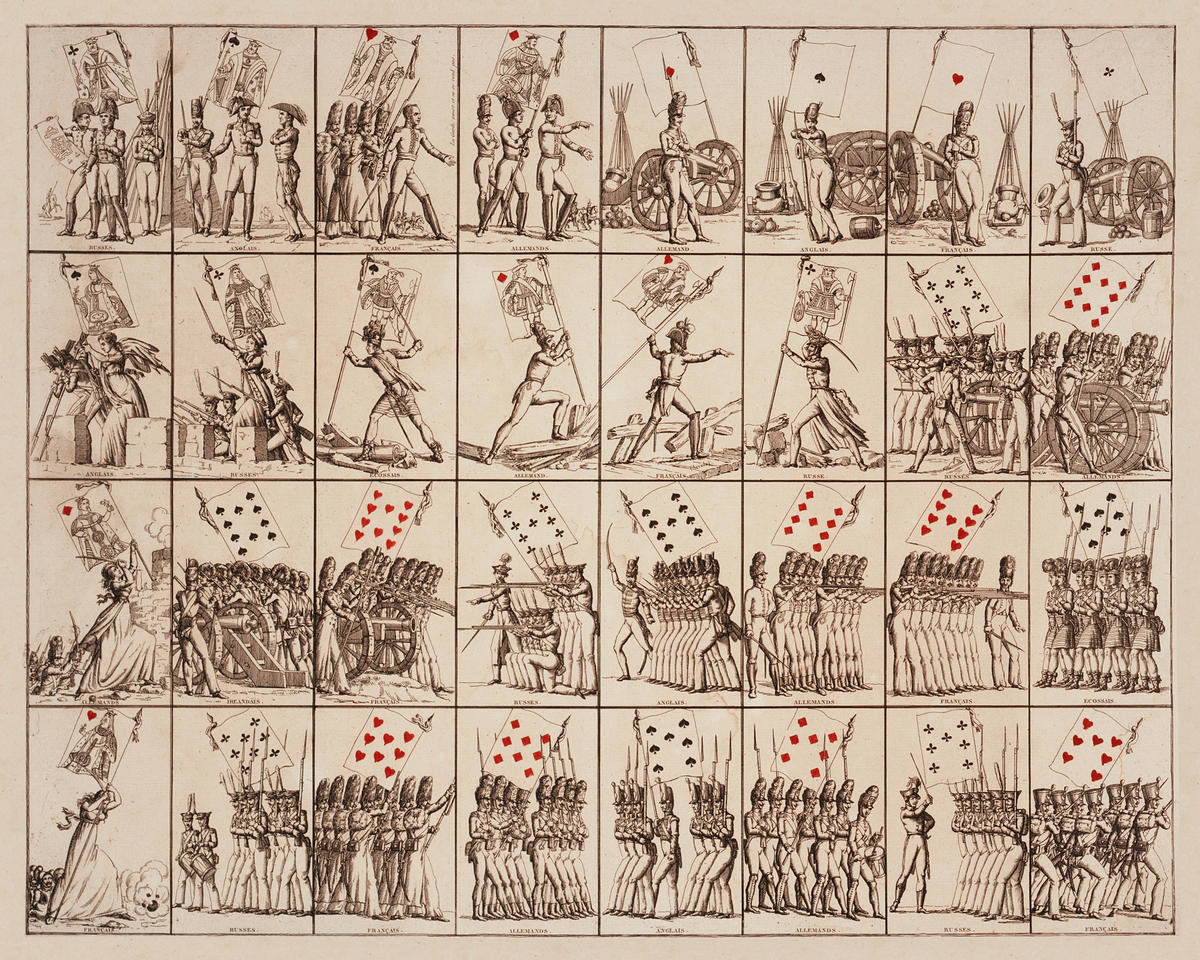 RUSSES.
ANGLAIS.
FRANÇAIS.
ALLEMANDS.
ALLEMAND.
ANGLAIS.
FRANÇAIS.
RUSSE.
ANGLAIS.
RUSSES.
ECOSSAIS.
ALLEMAND
FRANÇAIS.
RUSSE.
RUSSES.
ALLEMANDS.
ALLEMANDS.
IRLANDAIS.
FRANÇAIS.
RUSSES.
ANGLAIS.
ALLEMANDS.
FRANÇAIS.
ECOSSAIS.
FRANÇAIS.
RUSSES.
FRANÇAIS.
ALLEMANDS.
ANGLAIS.
ALLEMANDS.
RUSSES.
FRANÇAIS.